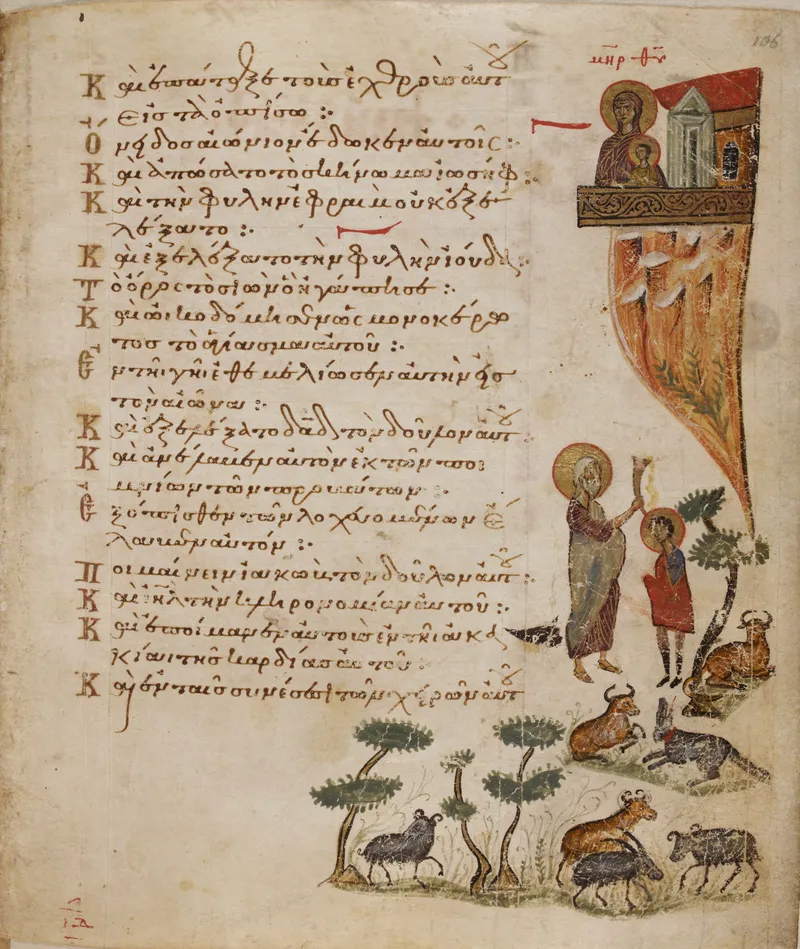 136
ΜΗΡ ΘΥ
Καὶ ἐπάταξε τοὺς ἐχθροὺς αὐτοῦ
εἰς τὰ ὀπίσω :
Ὄνειδος αἰώνιον ἔδωκεν αὐτοῖς :
Καὶ ἀπώσατο τὸ σκήνωμα ἰωσήφ :
Καὶ τὴν φυλὴν ἐφραὶμ οὐκ ἐξε
λέξατο :
Καὶ ἐξελέξατο τὴν φυλὴν ἰούδα :
Τὸ ὄρος τὸ σιὼν ὃ ἠγάπησε :
Καὶ ὠκοδόμησεν ὡς μονοκέρω
τος τὸ ἁγίασμα αὐτοῦ :
Ἐν τῆι γῆι ἐθεμελίωσεν αὐτὴν εἰς
τὸν αἰῶνα :
Καὶ ἐξελέξατο δαδ τὸν δοῦλον αὐτοῦ
Καὶ ἀνέλαβεν αὐτὸν ἐκ τῶν ποι
μνίων τῶν προβάτων :
Ἐξόπισθεν τῶν λοχευομένων ἔ
λαβεν αὐτόν :
Ποιμαίνειν ἰακὼβ τὸν δοῦλον αὐτοῦ :
Καὶ ιηλ τὴν κληρονομίαν αὐτοῦ :
Καὶ ἐποίμανεν αὐτοὺς ἐν τῆι ἀκα
κίαι τῆς καρδίας αὐτοῦ :
Καὶ ἐν ταῖς συνέσεσι τῶν χειρῶν αὐτοῦ